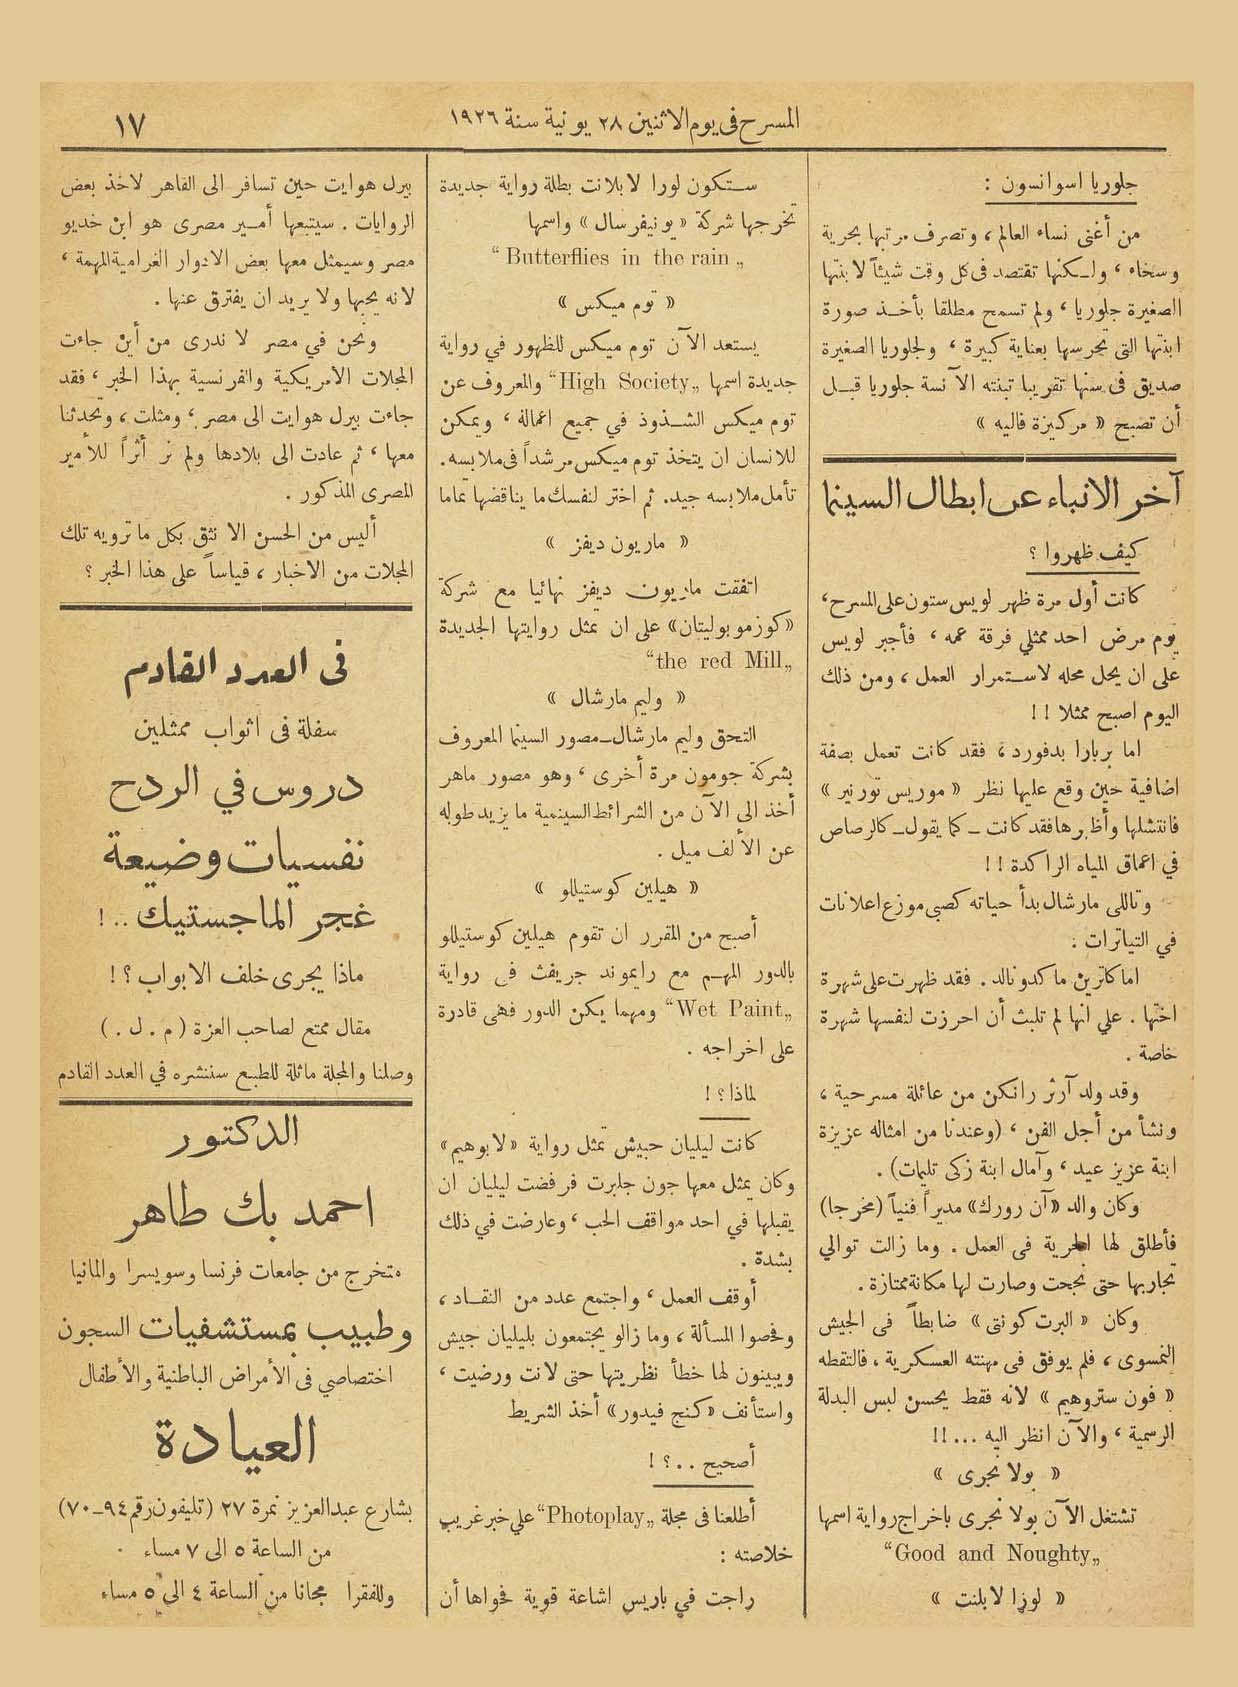 المسرح فى يوم الاثنين ٢٨ يونية سنة ١٩٢٦
١٧
جلوريا اسوانسون :
من أغنى نساء العالم ، وتصرف مرتبها بحرية
وسخاء ، ولكنها تقتصد فى كل وقت شيئاً لابنتها
الصغيرة جلوريا ، ولم تسمح مطلقا بأخذ صورة
ابنتها التى تحرسها بعناية كبيرة ، ولجلوريا الصغيرة
صديق فى سنها تقريبا تبنته الآنسة جلوريا قبل
أن تصبح « مركيزة فاليه »
آخر الانباء عن ابطال السينما
كيف ظهروا ؟
كانت أول مرة ظهر لويس ستون على المسرح ،
يوم مرض احد ممثلي فرقة عمه ، فأجبر لويس
على ان يحل محله لاستمرار العمل ، ومن ذلك
اليوم اصبح ممثلا !!
اما بربارا بدفورد ، فقد كانت تعمل بصفة
اضافية حين وقع عليها نظر « موريس تورنير »
فانتشلها وأظهرها فقد كانت ـ كما يقول ـ كالرصاص
في اعماق المياه الراكدة !!
وتاللى مارشال بدأ حياته كصبى موزع اعلانات
في التياترات :
اما كاترين ماكدونالد . فقد ظهرت على شهرة
اختها . علي انها لم تلبث أن احرزت لنفسها شهرة
خاصة .
وقد ولد آرثر رانكن من عائلة مسرحية ،
ونشأ من أجل الفن ، (وعندنا من امثاله عزيزة
ابنة عزيز عيد ، وآمال ابنة زكى تليمات) .
وكان والد «آن رورك» مديراً فنياً (مخرجا)
فأطلق لها الحرية فى العمل . وما زالت توالي
تجاربها حتى نجحت وصارت لها مكانة ممتازة .
وكان « البرت كونتى » ضابطاً فى الجيش
النمسوى ، فلم يوفق فى مهنته العسكرية ، فالتقطه
« فون ستروهيم » لانه فقط يحسن لبس البدلة
الرسمية ، والآن انظر اليه ... !!
« بولا نجرى »
تشتغل الآن بولا نجرى باخراج رواية اسمها
„Good and Noughty“
« لورا لابلنت »
ستكون لورا لابلانت بطلة رواية جديدة
تخرجها شركة « يونيفرسال » واسمها
„Butterflies in the rain“
« توم ميكس »
يستعد الآن توم ميكس للظهور في رواية
جديدة اسمها „High Society“ والمعروف عن
توم ميكس الشذوذ في جميع اعماله ، ويمكن
للانسان ان يتخذ توم ميكس مرشداً فى ملابسه.
تأمل ملابسه جيد. ثم اختر لنفسك ما يناقضها تماما
« ماريون ديفز »
اتفقت ماريون ديفز نهائيا مع شركة
«كوزموبوليتان» على ان تمثل روايتها الجديدة
„the red Mill“
« وليم مارشال »
التحق وليم مارشال ـ مصور السينما المعروف
بشركة جومون مرة أخرى ، وهو مصور ماهر
أخذ الى الآن من الشرائط السينمية ما يزيد طوله
عن الألف ميل .
« هيلين كوستيللو »
أصبح من المقرر ان تقوم هيلين كوستيللو
بالدور المهم مع رايموند جريفث فى رواية
„Wet Paint“ ومهما يكن الدور فهى قادرة
على اخراجه .
لماذا ؟ !
كانت ليليان جيش تمثل رواية «لابوهيم»
وكان يمثل معها جون جلبرت فرفضت ليليان ان
يقبلها في احد مواقف الحب ، وعارضت في ذلك
بشدة .
أوقف العمل ، واجتمع عدد من النقاد ،
وفحصوا المسألة ، وما زالو يجتمعون بليليان جيش
ويبينون لها خطأ نظريتها حتى لانت ورضيت ،
واستأنف «كنج فيدور» أخذ الشريط
أصحيح .. ؟ !
أطلعنا فى مجلة „Photoplay“ علي خبر غريب
خلاصته :
راجت في باريس اشاعة قوية فحواها أن
بيرل هوايت حين تسافر الى القاهر لاخذ بعض
الروايات . سيتبعها أمير مصرى هو ابن خديو
مصر وسيمثل معها بعض الادوار الغرامية المهمة ،
لانه يحبها ولا يريد ان يفترق عنها .
ونحن في مصر لا ندرى من أين جاءت
المجلات الامريكية والفرنسية بهذا الخبر ، فقد
جاءت بيرل هوايت الى مصر ، ومثلت ، وتحدثنا
معها ، ثم عادت الى بلادها ولم نر أثراً للأمير
المصرى المذكور .
أليس من الحسن الا نثق بكل ما ترويه تلك
المجلات من الاخبار ، قياساً على هذا الخبر ؟
فى العدد القادم
سفلة فى اثواب ممثلين
دروس في الردح
نفسيات وضيعة
غجر الماجستيك .. !
ماذا يجرى خلف الابواب ؟ !
مقال ممتع لصاحب العزة ( م . ل . )
وصلنا والمجلة ماثلة للطبع سننشره في العدد القادم
الدكتور
احمد بك طاهر
متخرج من جامعات فرنسا وسويسرا والمانيا
وطبيب بمستشفيات السجون
اختصاصي فى الأمراض الباطنية والأطفال
العيادة
بشارع عبد العزيز نمرة ٢٧ (تليفون رقم ٩٤ـ٧٠)
من الساعة ٥ الى ٧ مساء .
وللفقرا مجانا من الساعة ٤ الى ٥ مساء